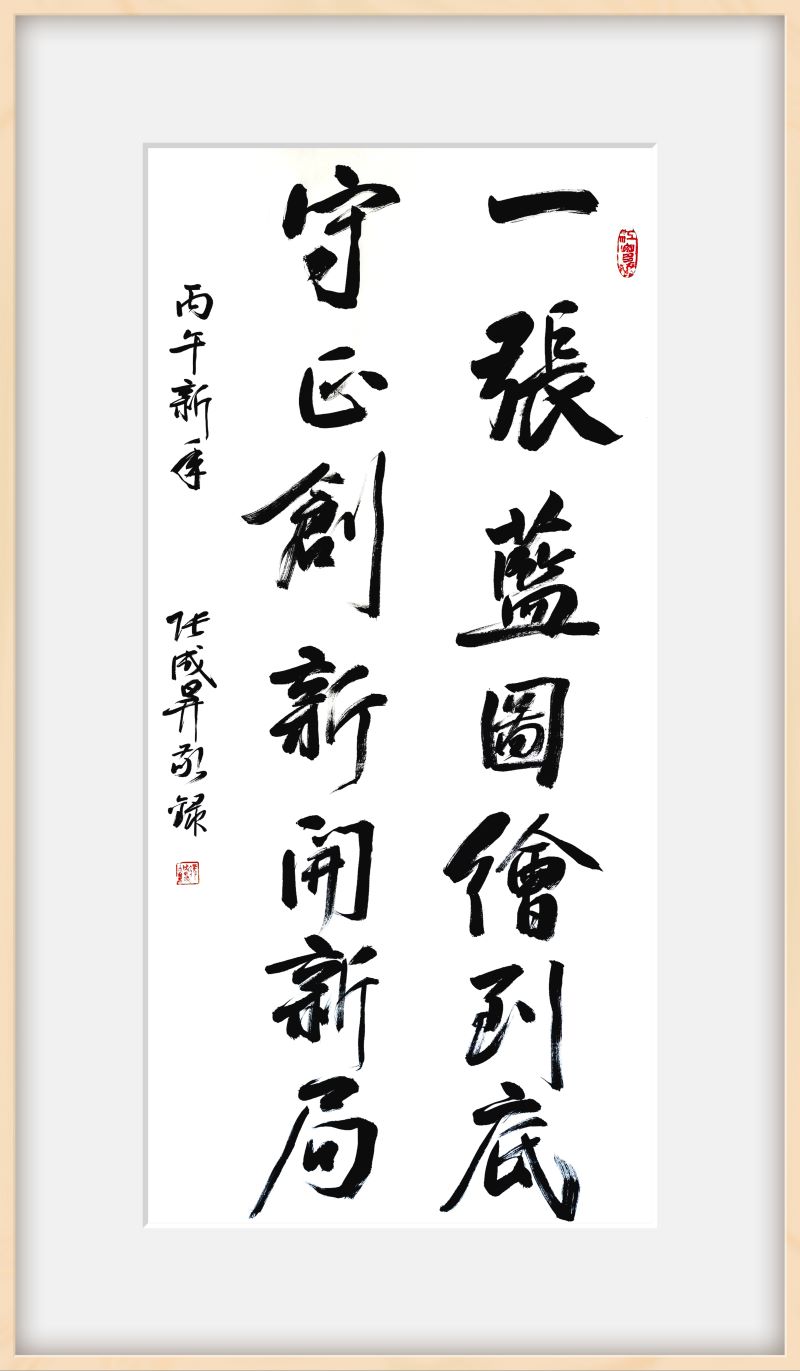 一張藍圖繪到底
守正創新開新局
丙午新年
任成昇敬錄